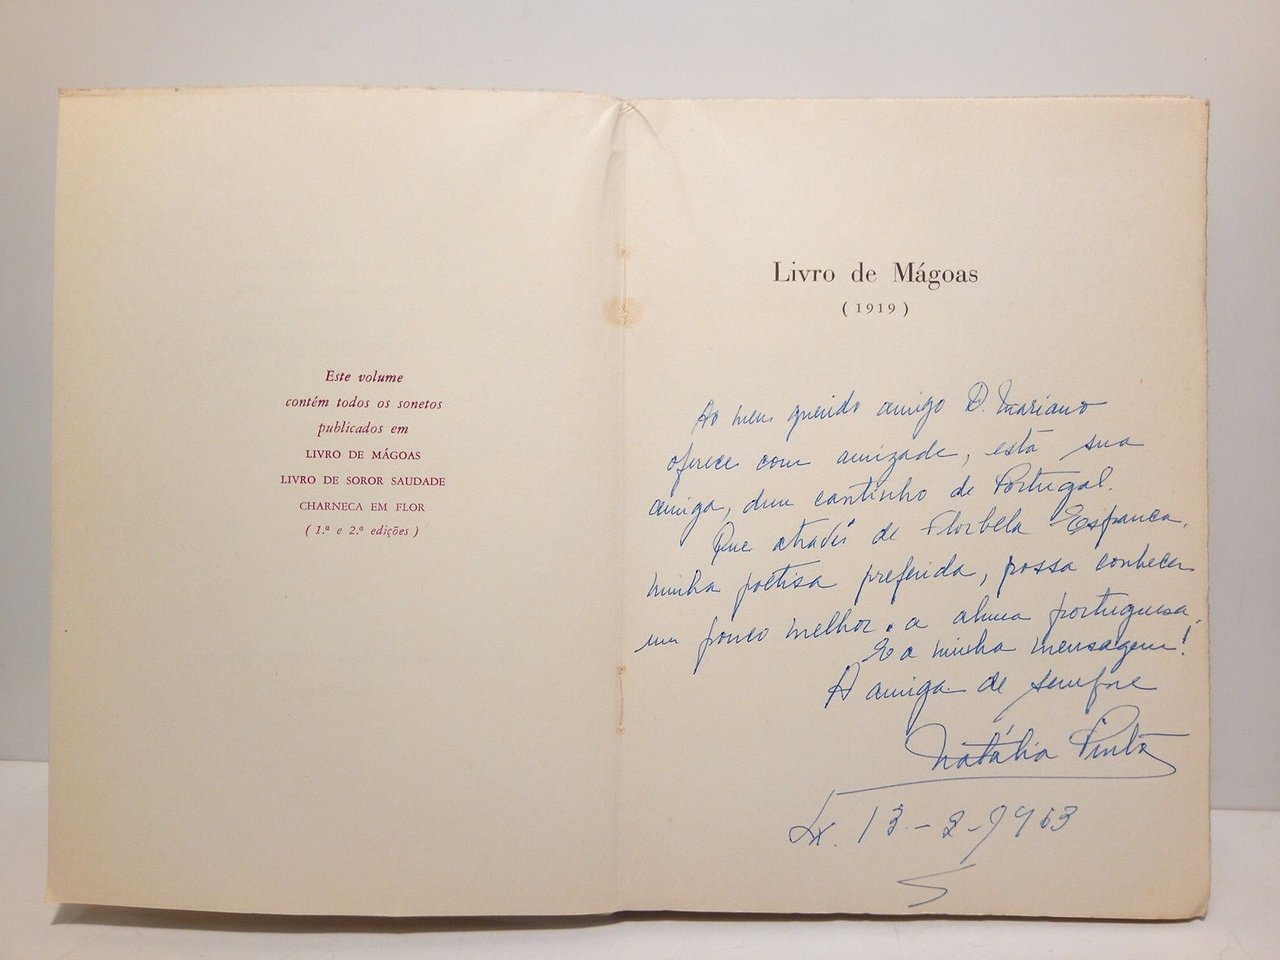 Este volume
contém todos os sonetos
publicados em
LIVRO DE MÁGOAS
LIVRO DE SOROR SAUDADE
CHARNECA EM FLOR
( 1.ª e 2.ª edições )
Livro de Mágoas
( 1919 )
Ao meu querido amigo D. Mariano
oferece com amizade, esta sua
amiga, dum cantinho de Portugal.
Que através de Florbela Espanca,
minha poetisa preferida, possa conhecer
um pouco melhor a alma portuguesa,
E a minha mensagem!
A amiga de sempre
Natália Pinto
Lx. 13-2-1963